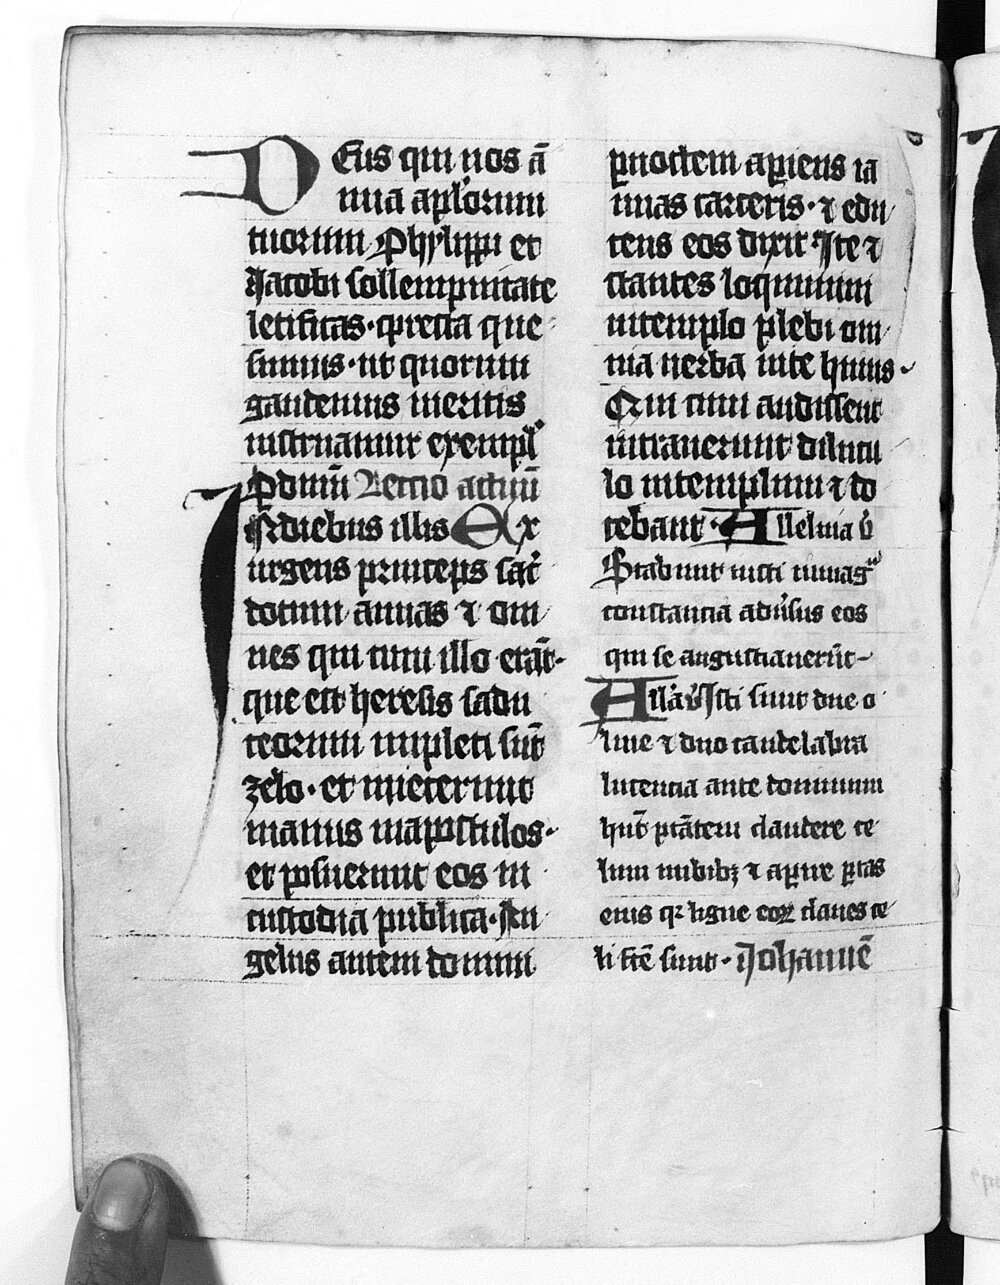 DEus qui nos ā
nua apl'orum
tuorum Phylippi et
Jacobi sollempnitate
letificas· presta que
sumus· ut quorum
gaudemus meritis
instruamur exempl'
P dnm̄ Lectio actuū
IN diebus illis Ex
urgens princeps sac̄
dotum annas ⁊ om
nes qui cum illo erāt·
que est heresis sadu
ceorum impleti sūt
zelo· et iniecerunt
manus inapostolos·
et posuerunt eos in
custodia publica· An
gelus autem domini
pnoctem apiens ia
nuas carceris· ⁊ edu
cens eos dixit Ite ⁊
stantes loquimini
intemplo plebi om
nia uerba uite huius·
Qui cum audissent
intrauerunt dilucu
lo intemplum ⁊ do
cebant· Alleluia v̄
Stabunt iusti inmagͣ
constancia adu'sus eos
qui se angustiauerūt
All'a v̄ Isti sunt due o
liue ⁊ duo candelabra
lucencia ante dominum
hn̄t ptātem claudere ce
lum nubibꝫ ⁊ apire portas
eius qꝛ ligue eoꝝ claues ce
li fc̄e sunt· Johannē